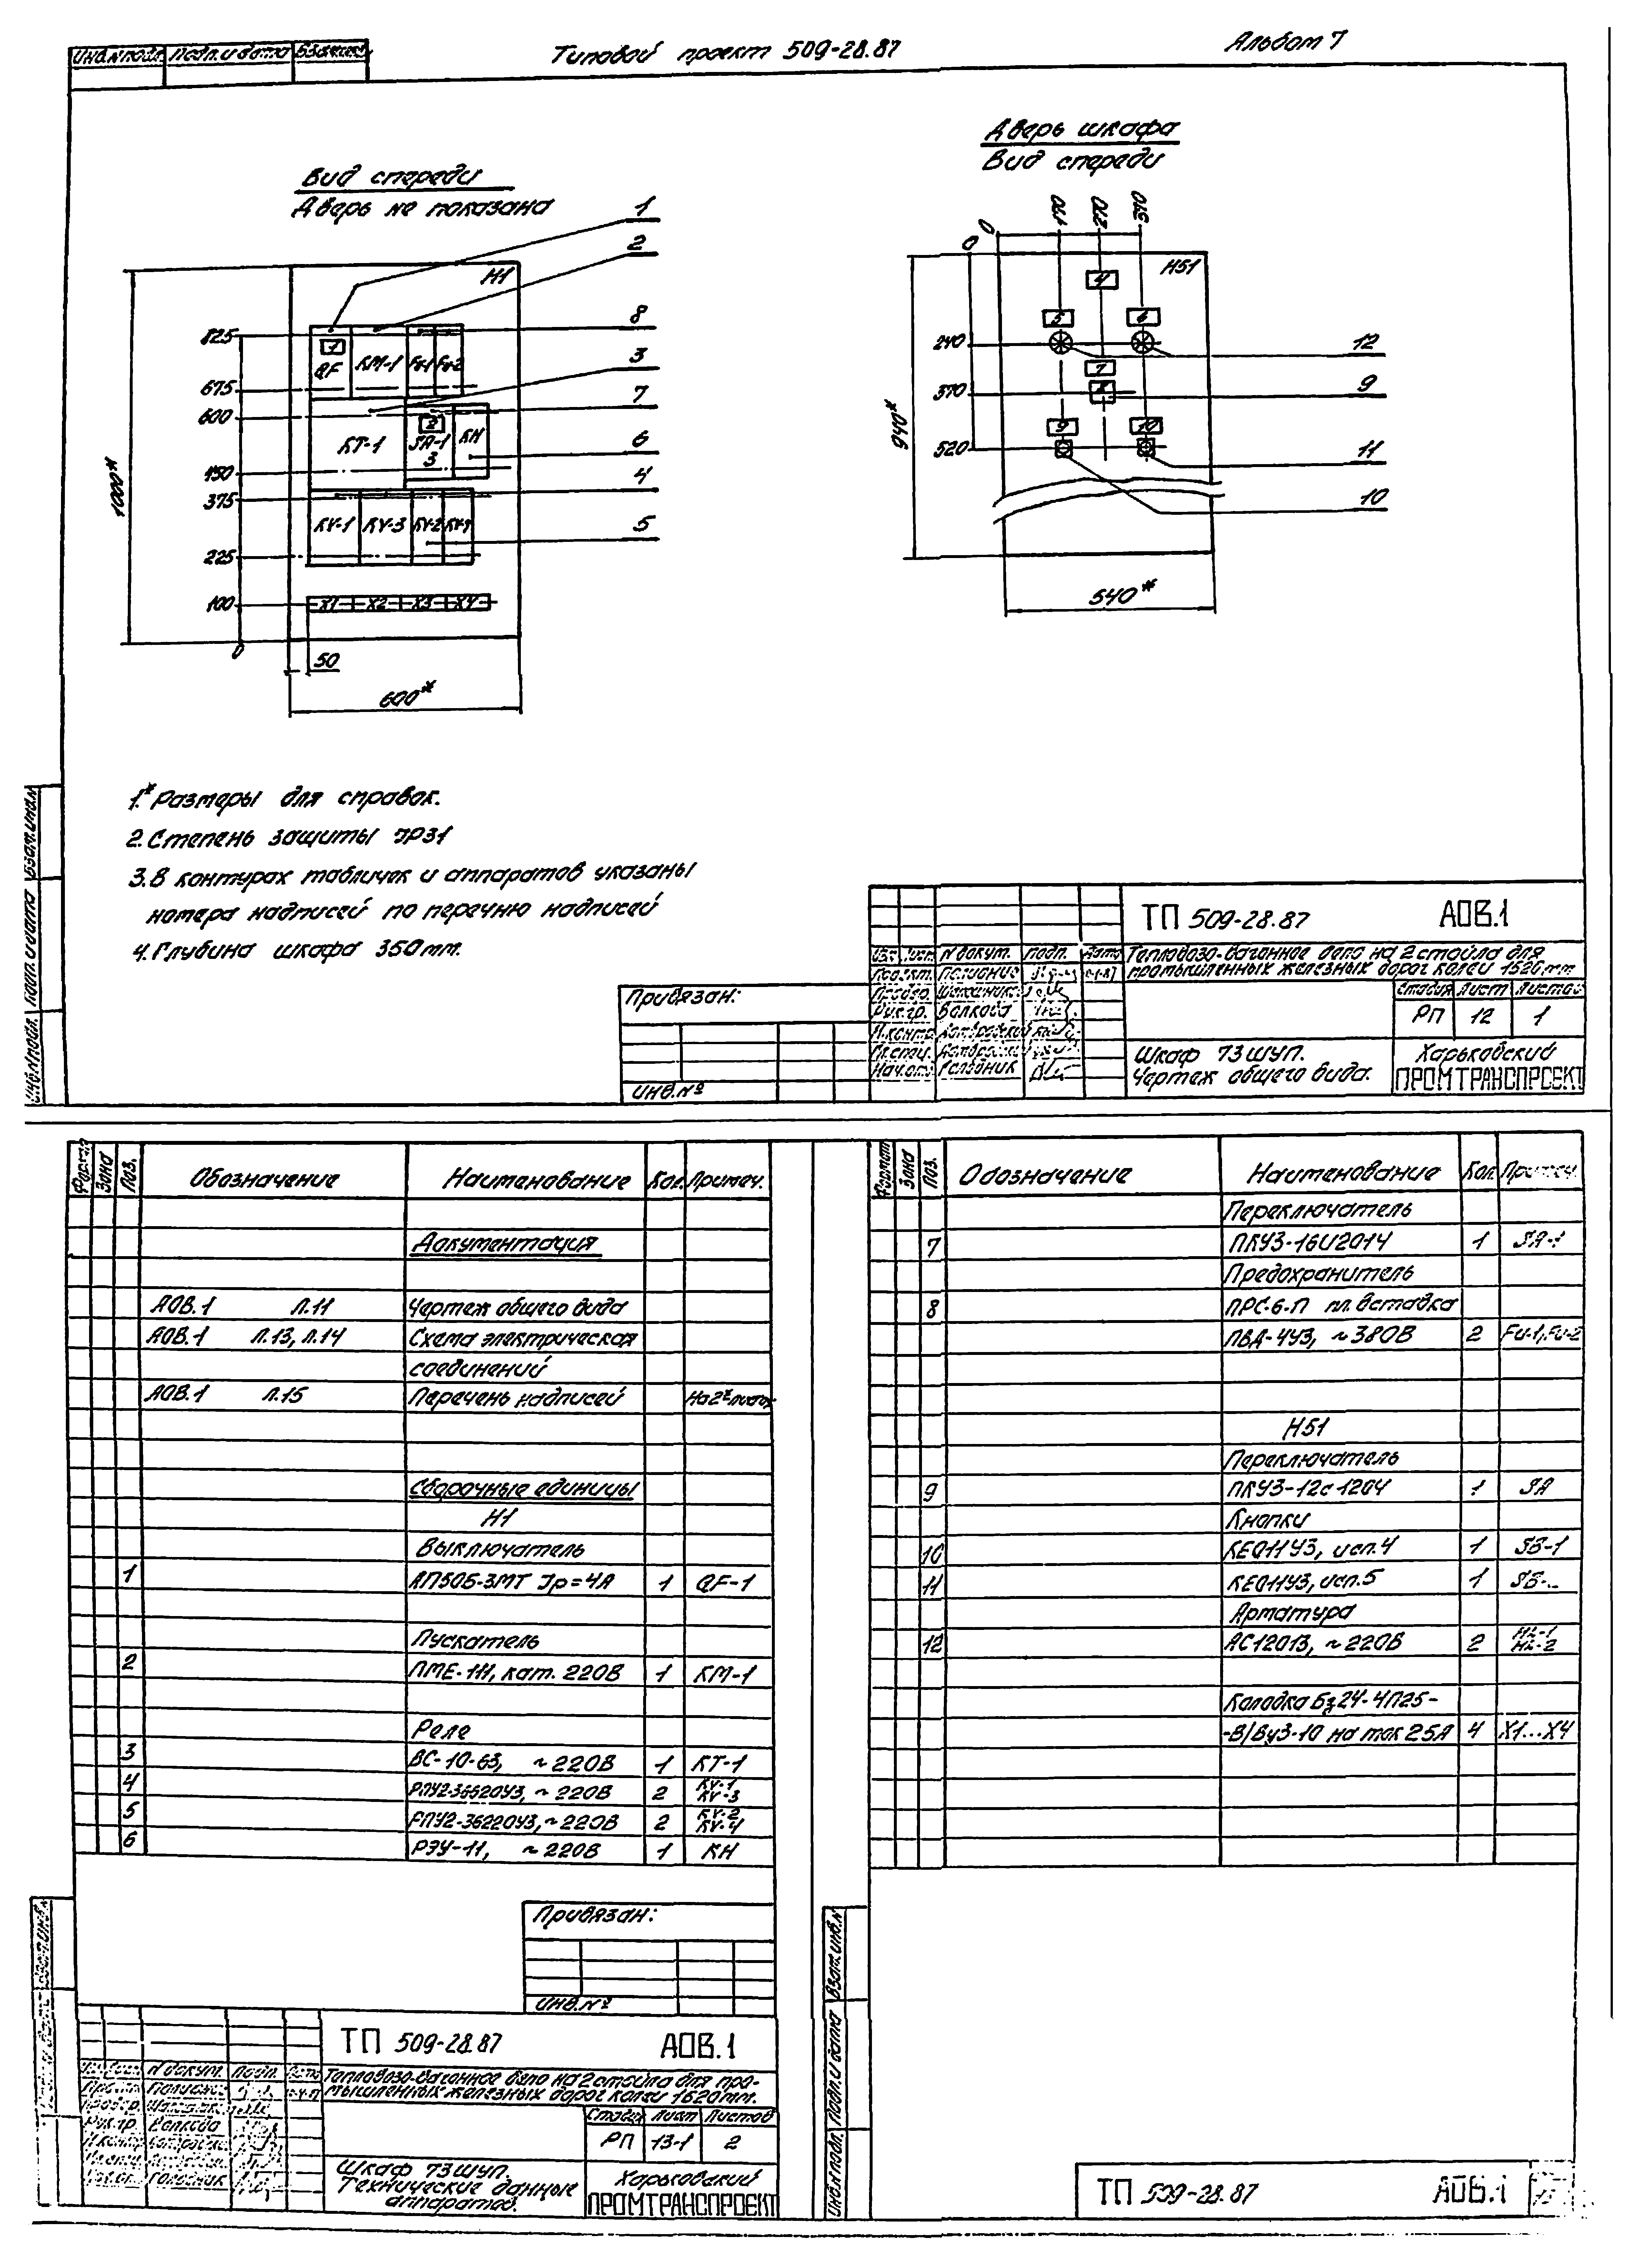 Инв.№подл. Подп. и дата Взам.инв.
Типовой проект 509-28.87
Альбом 7
Вид спереди
Дверь не показана
1
2
8
3
7
6
4
5
Н1
825
675
600
450
375
225
100
0
1000*
1
QF
КМ-1
Fu-1
Fu-2
КТ-1
2
SA-1
3
КН
КV-1
КV-3
КV-2
КV-4
Х1
Х2
Х3
Х4
50
600*
Дверь шкафа
Вид спереди
0
0
170
270
370
Н51
4
5
6
7
8
9
10
240
370
520
940*
540*
12
9
11
10
1.* Размеры для справок.
2. Степень защиты JP31
3. В контурах табличек и аппаратов указаны
номера надписей по перечню надписей
4. Глубина шкафа 350мм.
Привязан:
ИНВ.№
ТП 509-28.87 АОВ.1
Изм. Лист N докум. Подп. Дата
Тепловозо-вагонное депо на 2 стойла для
промышленных железных дорог колеи 1520мм
Стадия Лист Листов
РП 12 1
Рук.гр. Волкова
Шкаф 73ШУП.
Чертеж общего вида.
Харьковский
ПРОМТРАНСПРОЕКТ
Инв.№подл. Подп. и дата Взам.инв.№
Формат Зона Поз. Обозначение Наименование Кол. Примеч.
Документация
АОВ.1 Л.11 Чертеж общего вида
АОВ.1 Л.13, Л.14 Схема электрическая
соединений
АОВ.1 Л.15 Перечень надписей На 2х листах
Сборочные единицы
Н1
Выключатель
1 АП50Б-3МТ Jр=4А 1 QF-1
Пускатель
2 ПМЕ-111, кат. 220В 1 КМ-1
Реле
3 ВС-10-63, ~220В 1 КТ-1
4 РПУ2-36620У3, ~220В 2 КV-1 КV-3
5 РПУ2-36220У3, ~220В 2 КV-2 КV-4
6 РЭУ-11, ~220В 1 КН
Привязан:
ИНВ.№
ТП 509-28.87 АОВ.1
Тепловозо-вагонное депо на 2 стойла для про-
мышленных железных дорог колеи 1520мм.
Стадия Лист Листов
РП 13-1 2
Рук.гр. Волкова
Шкаф 73ШУП.
Технические данные
аппаратов.
Харьковский
ПРОМТРАНСПРОЕКТ
Формат Зона Поз. Обозначение Наименование Кол. Примеч.
Переключатель
7 ПКУ3-16И2014 1 SA-1
Предохранитель
8 ПРС-6-П пл. вставка
ПВД-4У3, ~380В 2 Fu-1, Fu-2
Н51
Переключатель
9 ПКУ3-12с1204 1 SA
Кнопки
10 КЕ011У3, исп.4 1 SB-1
11 КЕ011У3, исп.5 1
Арматура
12 АС12013, ~220В 2 HL-1 HL-2
Колодка Бз24-4П25-
-В/Ву3-10 на ток 25А 4 Х1...Х4
Инв.№подл. Подп. и дата Взам.инв.№
ТП 509-28.87 АОВ.1